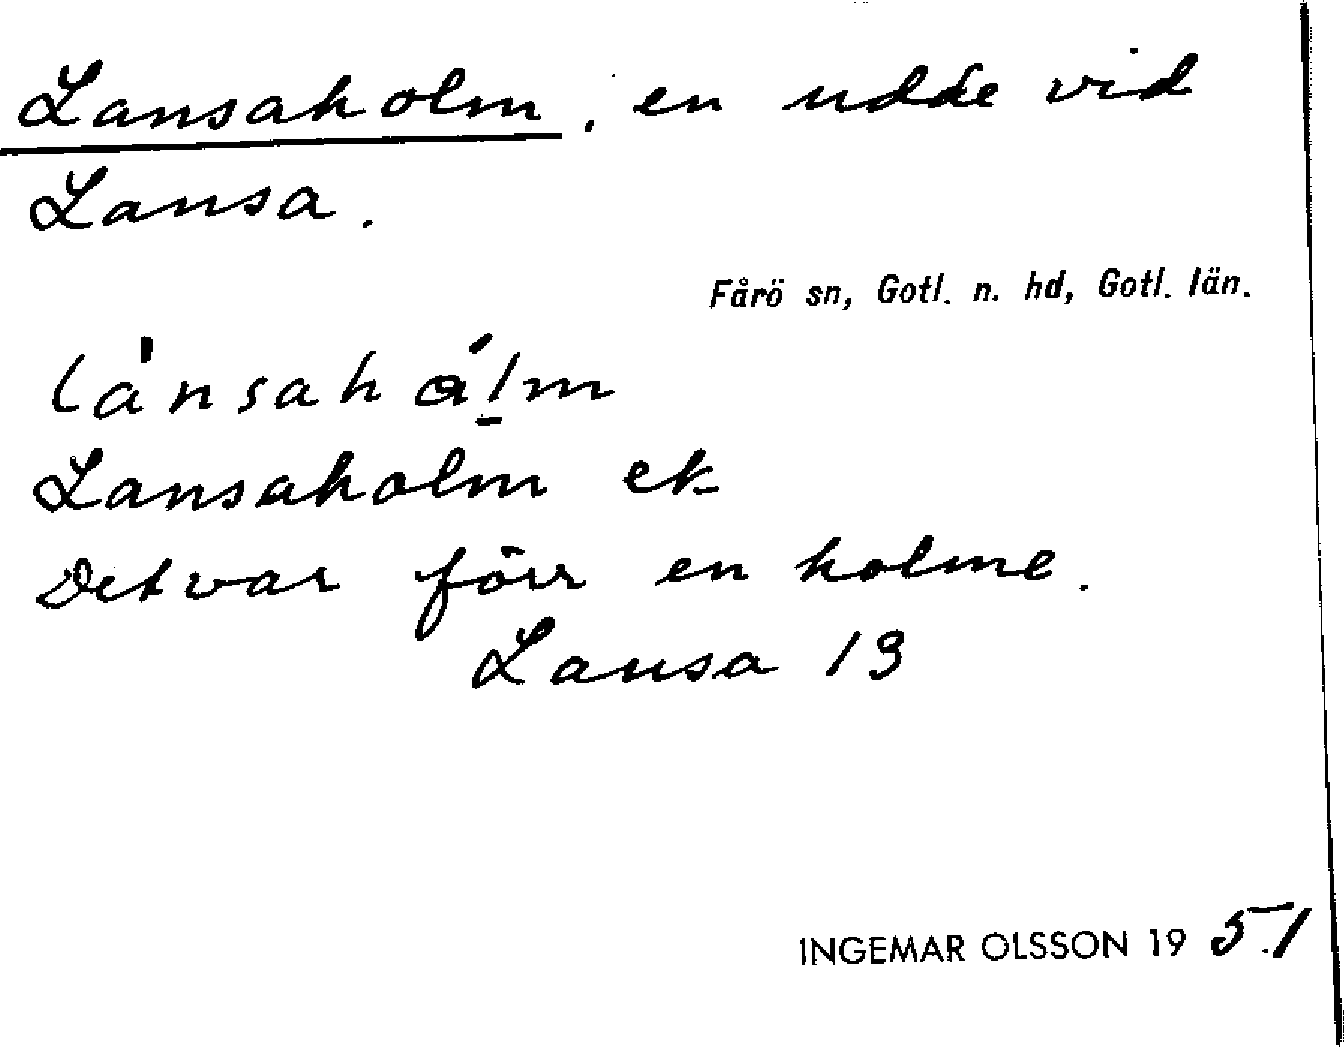 Lansaholm, en udde vid
Lansa.
Fårö sn, Gotl. n. hd, Gotl. län.
Lansaholm ek
Det var förr en holme.
Lansa 13
INGEMAR OLSSON 1951